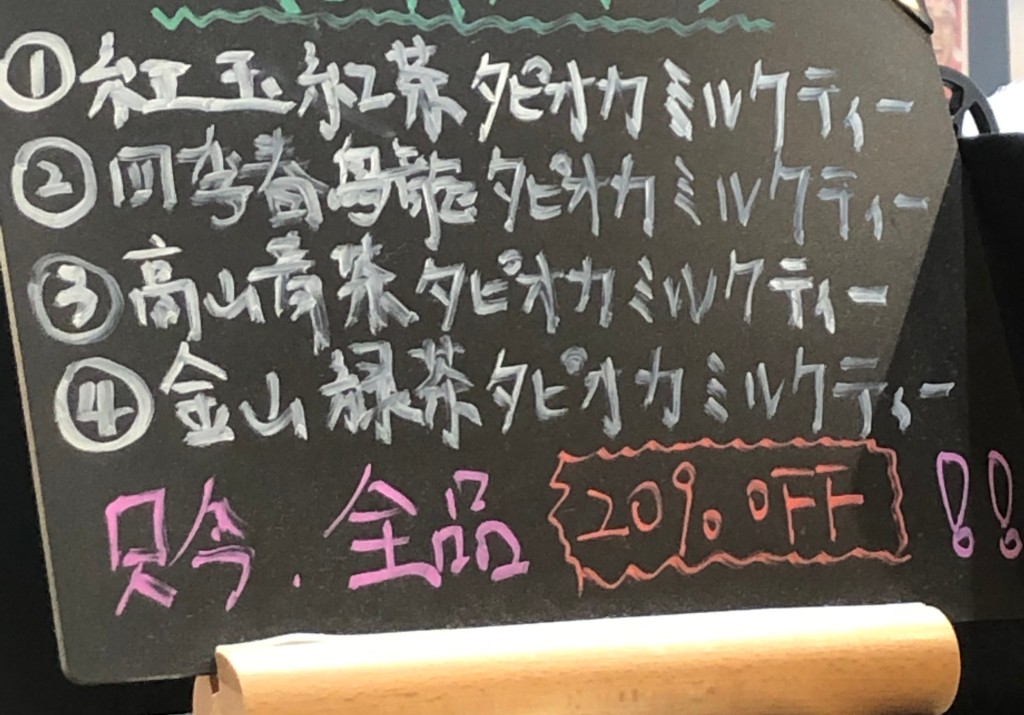 ①紅玉紅茶 タピオカミルクティー
②四季春烏龍 タピオカミルクティー
③高山青茶 タピオカミルクティー
④金山緑茶 タピオカミルクティー
只今.全品 20% OFF !!